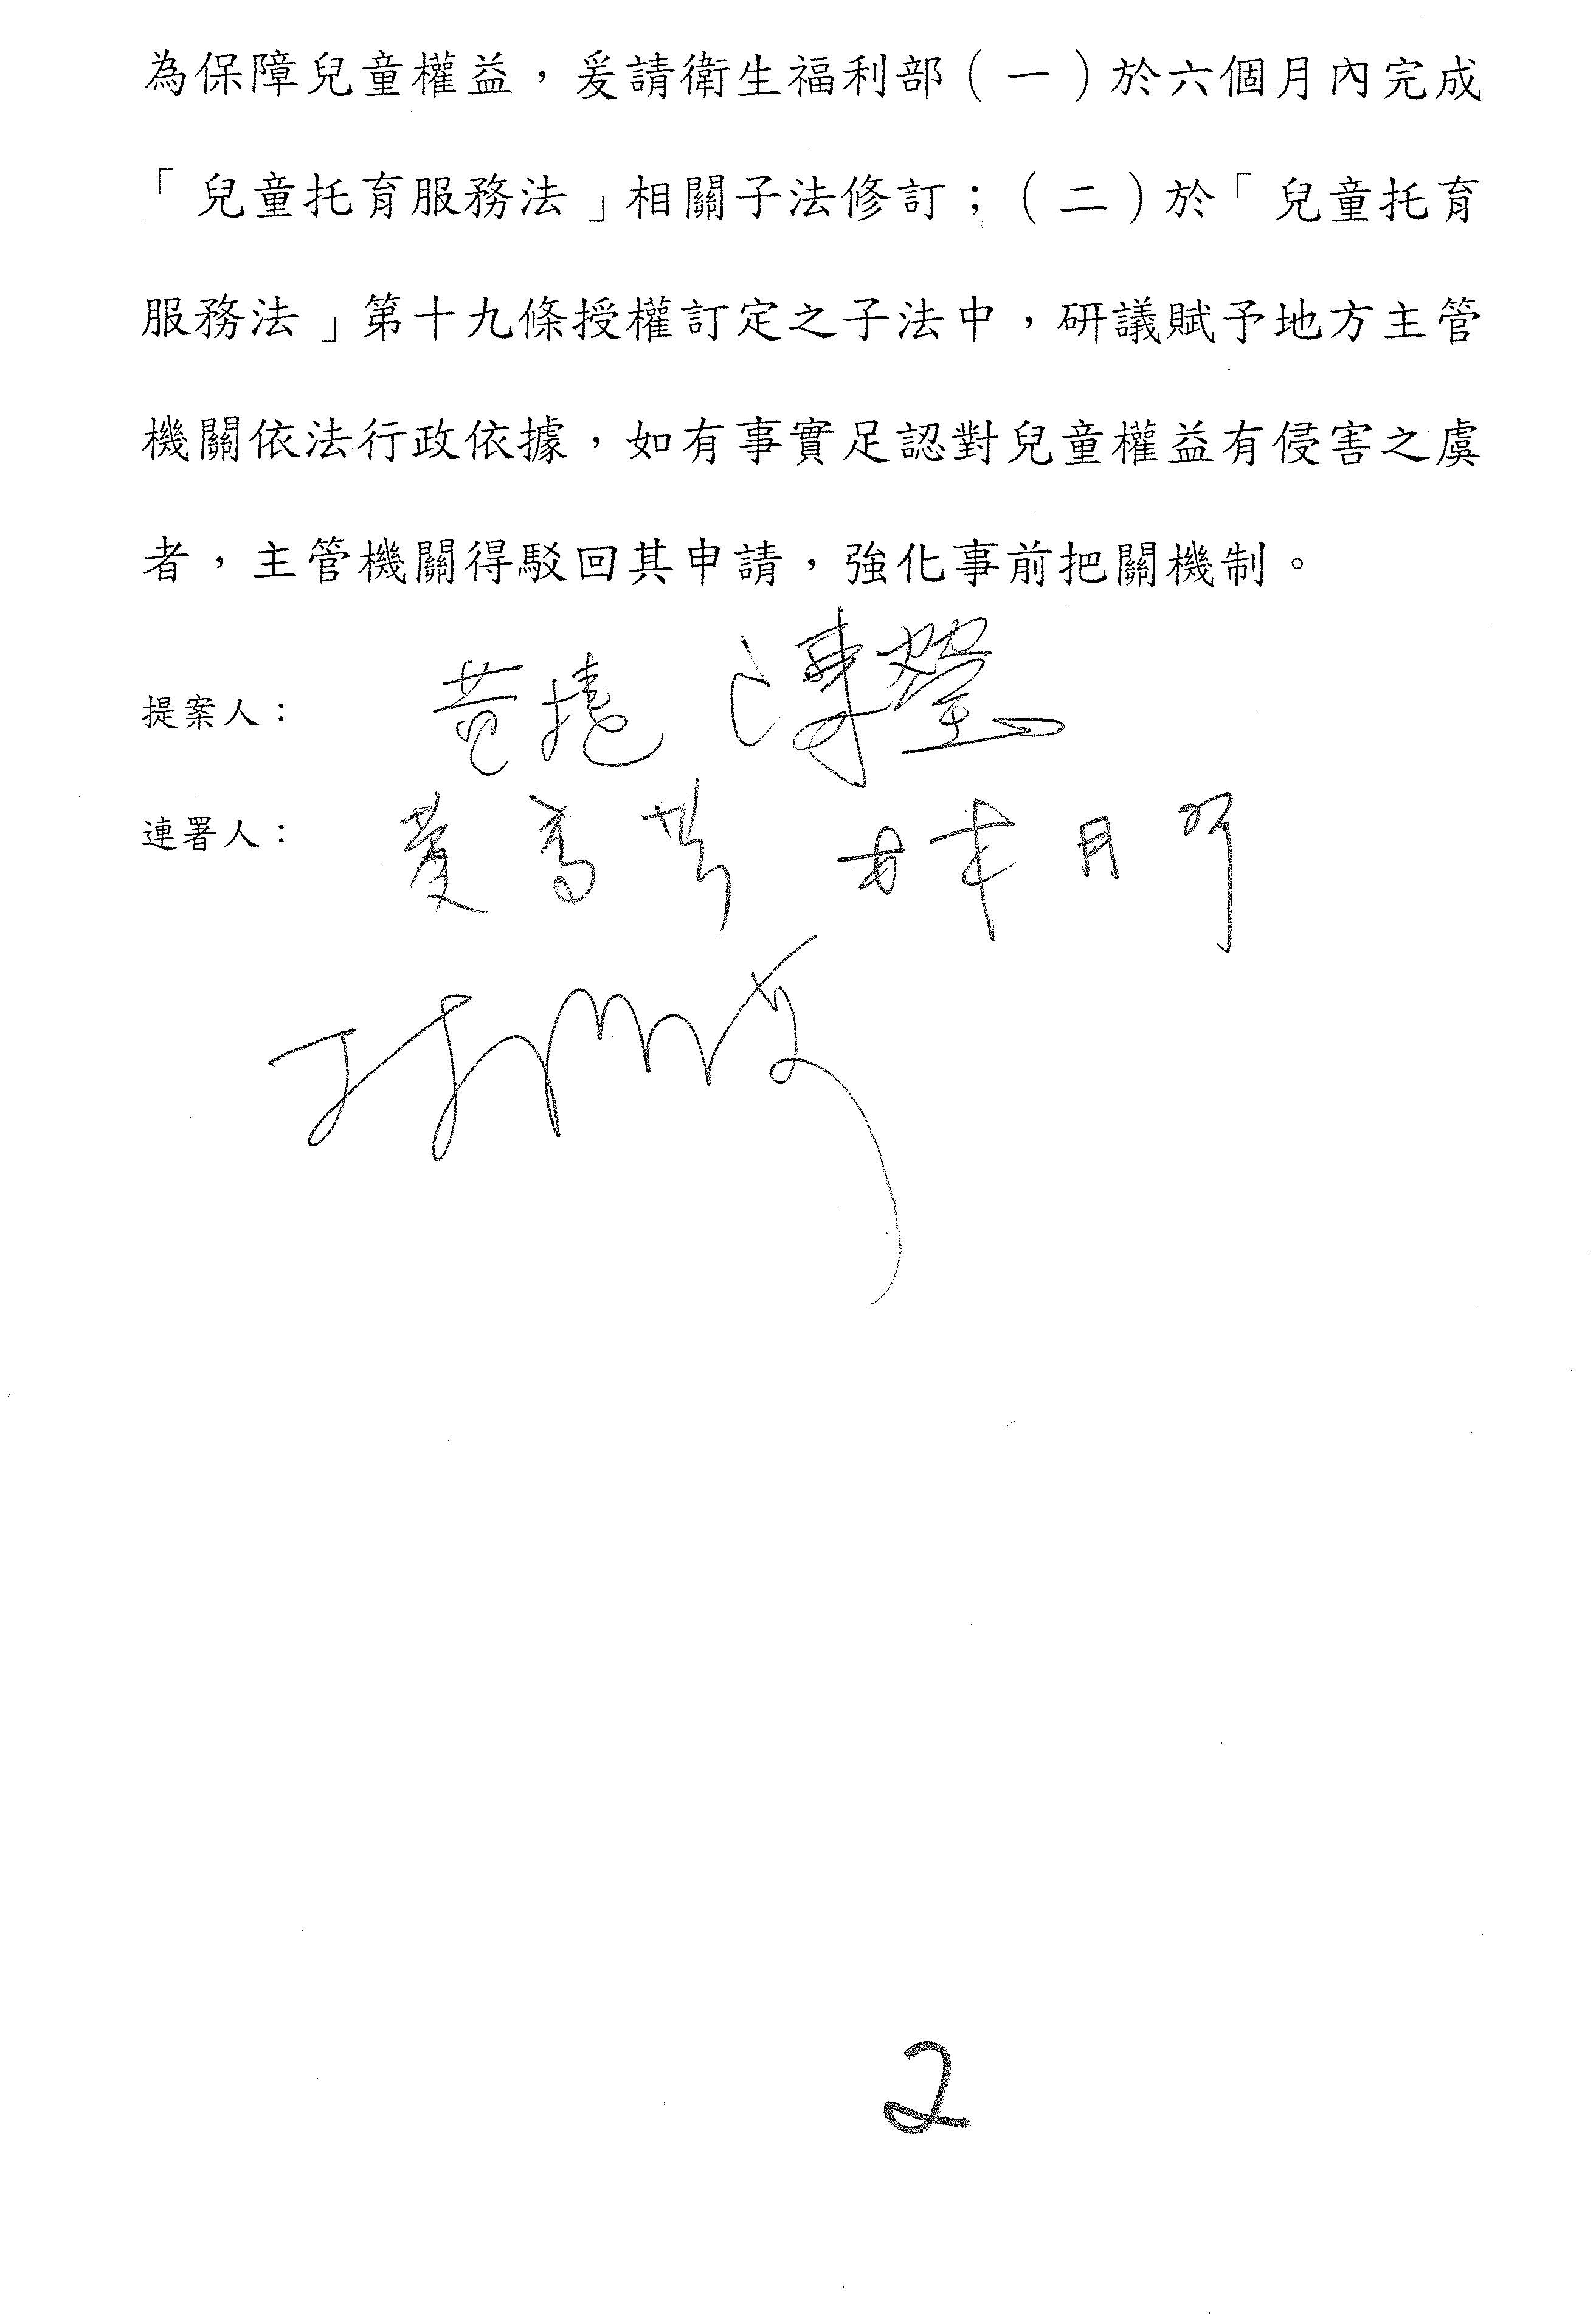 為保障兒童權益，爰請衛生福利部（一）於六個月內完成
「兒童托育服務法」相關子法修訂；（二）於「兒童托育
服務法」第十九條授權訂定之子法中，研議賦予地方主管
機關依法行政依據，如有事實足認對兒童權益有侵害之虞
者，主管機關得駁回其申請，強化事前把關機制。
提案人： 黃捷 陳瑩
連署人： 黃秀芳 林月琴
2